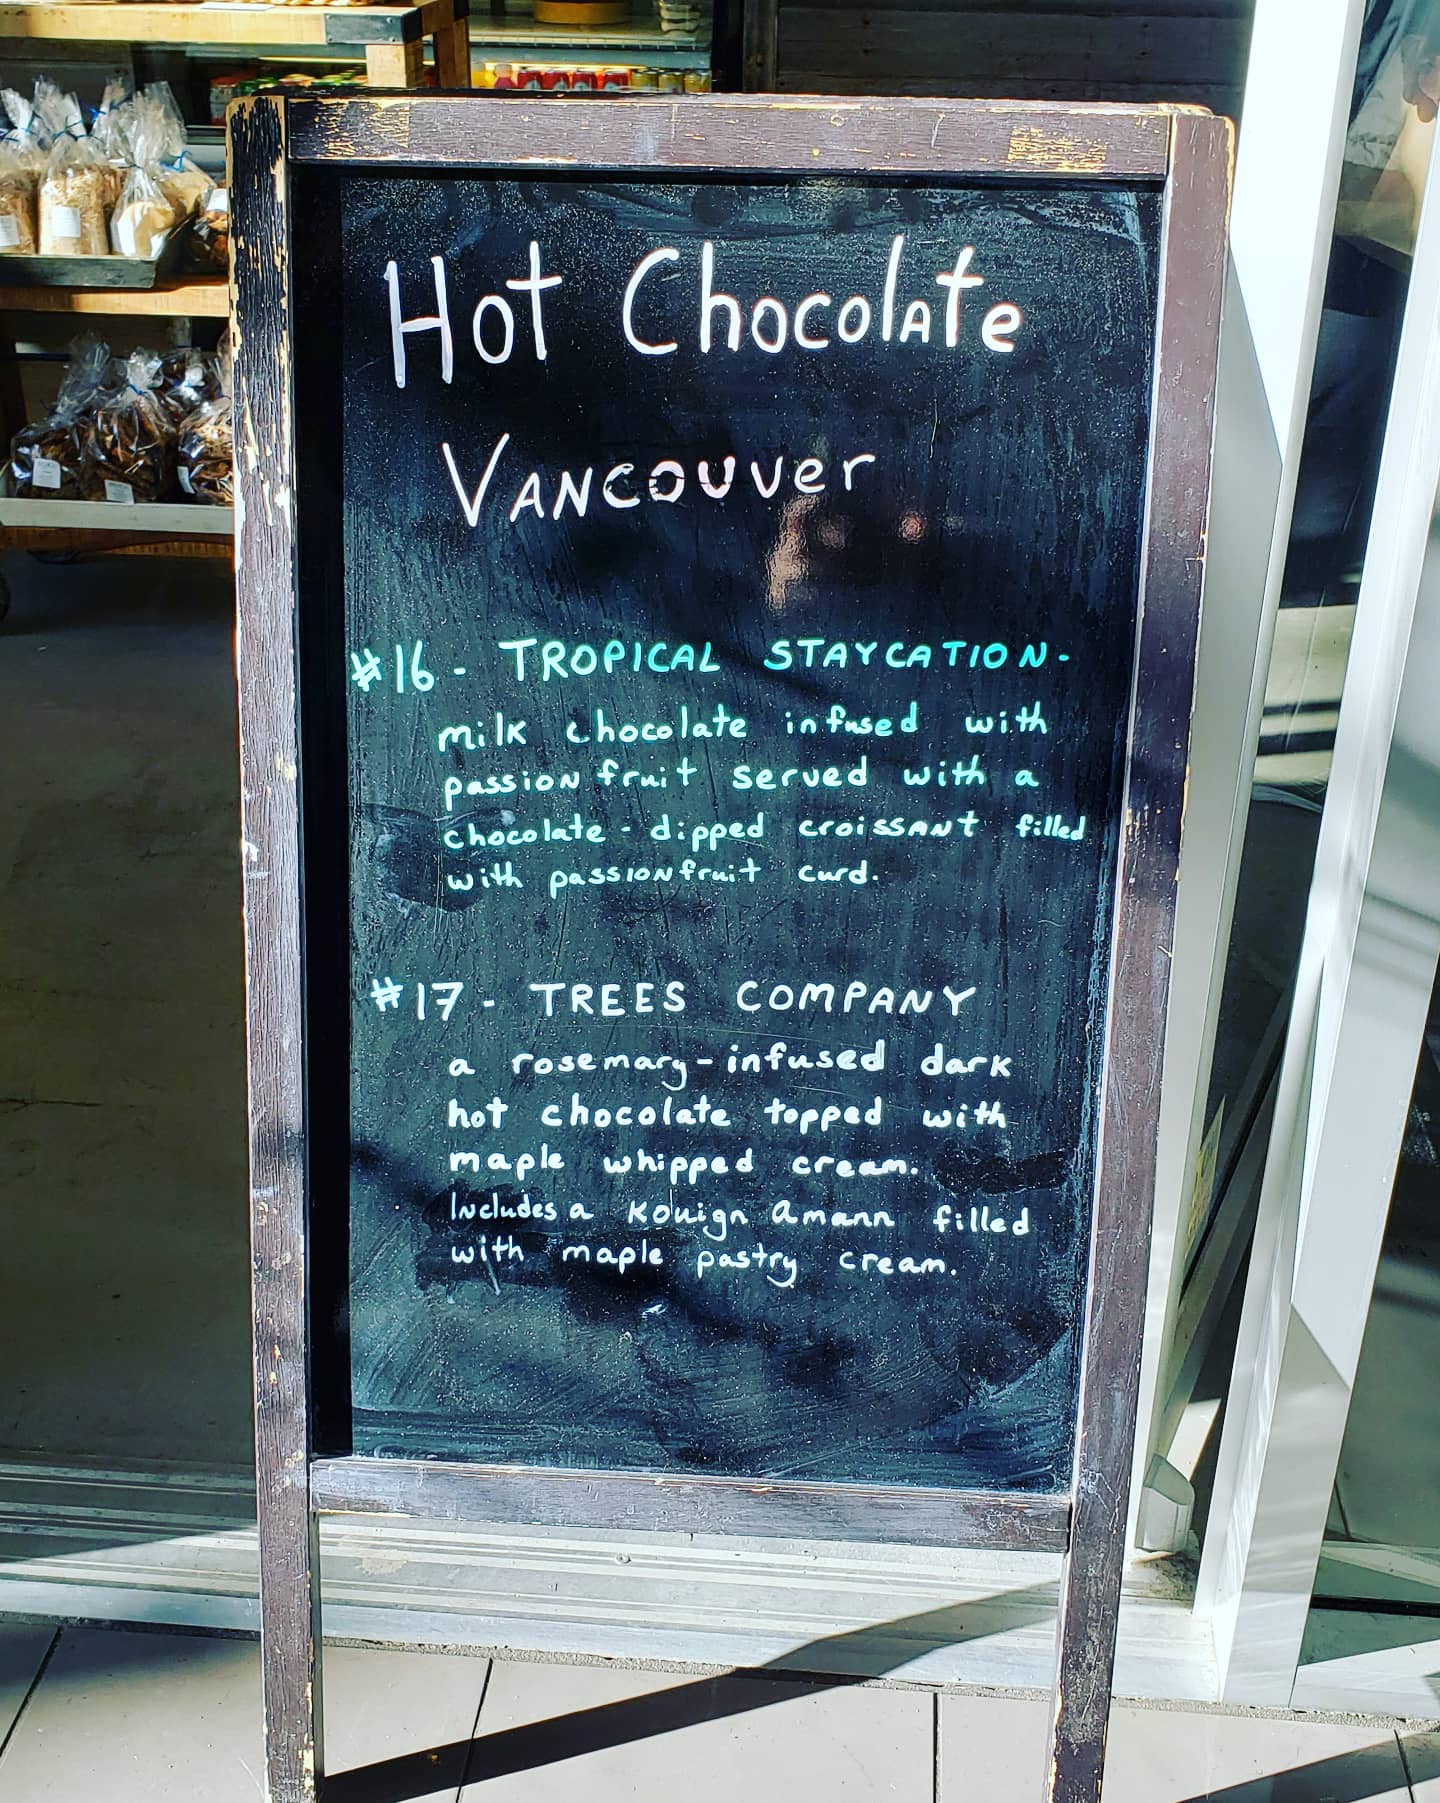 Hot Chocolate
Vancouver
#16 - TROPICAL STAYCATION -
milk chocolate infused with
passionfruit served with a
chocolate - dipped croissant filled
with passionfruit curd.
#17 - TREES COMPANY
a rosemary-infused dark
hot chocolate topped with
maple whipped cream.
Includes a kouign amann filled
with maple pastry cream.